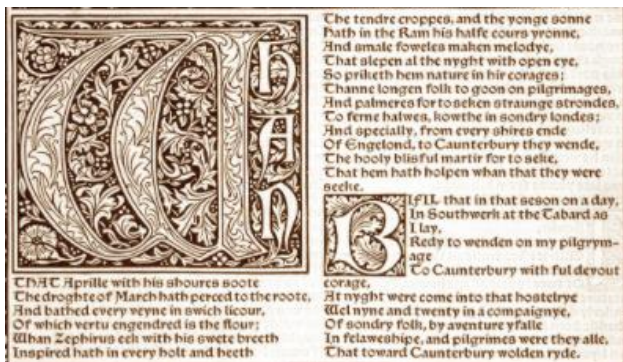 WHAN
THAT Aprille with his shoures soote
The droghte of March hath perced to the roote,
And bathed every veyne in swich licour,
Of which vertu engendred is the flour;
Whan Zephirus eek with his swete breeth
Inspired hath in every holt and heeth
The tendre croppes, and the yonge sonne
Hath in the Ram his halfe cours yronne,
And smale foweles maken melodye,
That slepen al the nyght with open eye,
So priketh hem nature in hir corages;
Thanne longen folk to goon on pilgrimages,
And palmeres for to seken straunge strondes,
To ferne halwes, kowthe in sondry londes;
And specially, from every shires ende
Of Engelond, to Caunterbury they wende,
The hooly blisful martir for to seke,
That hem hath holpen whan that they were
seeke.
BIFIL that in that seson on a day,
In Southwerk at the Tabard as
I lay,
Redy to wenden on my pilgrym-
age
To Caunterbury with ful devout
corage,
At nyght were come into that hostelrye
Wel nyne and twenty in a compaignye,
Of sondry folk, by aventure yfalle
In felaweshipe, and pilgrimes were they alle,
That toward Caunterbury wolden ryde.